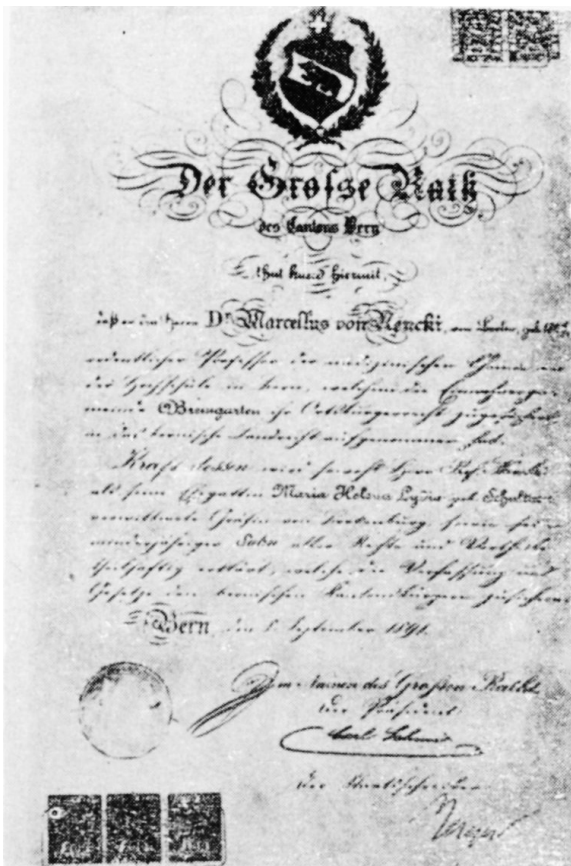 Der Grosse Rath
des Cantons Bern
thut kund hiermit,
daß er den Herrn Dr. Marcellus von Nencki, von
ordentlicher Professor der medizinischen Chemie an
der Hochschule in Bern, welchem die
Bremgarten ihr Ortsbürgerrecht zugesichert
in das bernische Landrecht aufgenommen hat.
Kraft dessen wird sowohl Herr Prof. Nencki
als seine Ehegattin Maria Helena geb.
verwittwete Gräfin von sowie sein
minderjähriger Sohn aller Rechte und Vortheile
theilhaftig erklärt, welche die Verfassung und
Gesetze den bernischen Kantonsbürgern zusichern.
Bern, den September 1891.
Im Namen des Großen Rathes
Der Präsident
Der Staatsschreiber